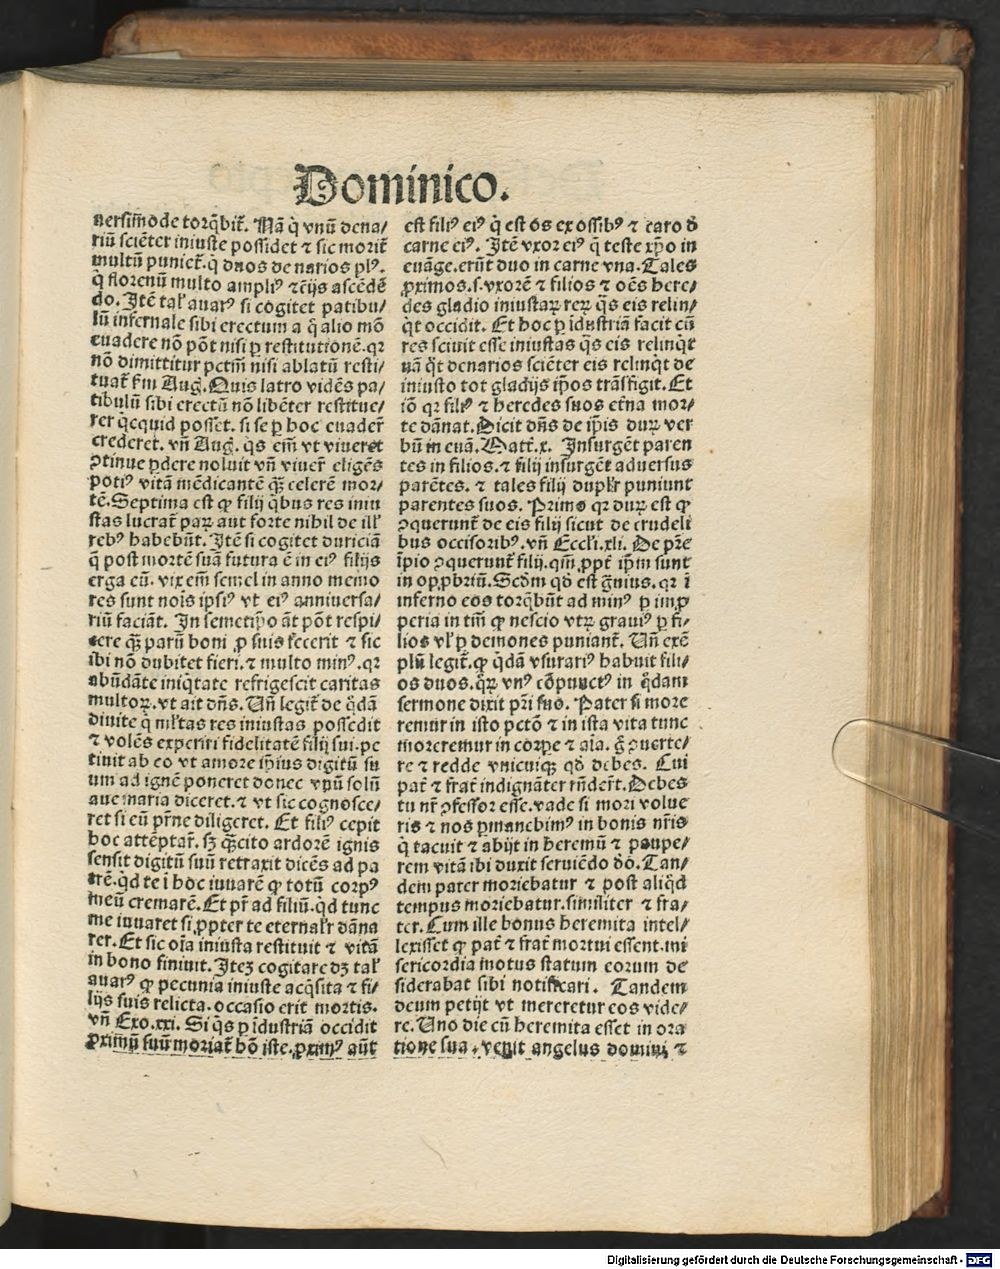 Dominico.
uersim̄ode torq̄bit̄. Nā q̇ vnū dena/
riū sciēter iniuste possidet ⁊ sic morit̄
multū puniet̄. q̇ duos denarios pl⁹.
q̇ florenū multo ampli⁹ ⁊ ēijs ascēdē
do. Itē tal̄ auar⁹ si cogitet patibu/
lū infernale sibi erectum a q̊ alio mō
euadere nō pōt nisi ꝑ restitutionē. qꝛ
nō dimittitur pctm̄ nisi ablatū resti/
tuat̄ ẜm Aug. Quis latro vidēs pa/
tibulū sibi erectū nō libēter restitue/
rer q̇cquid posset. si se ꝑ hoc euader̄
crederet. vn̄ Aug. q̇s em̄ vt viueret
ↄtinue ꝑdere noluit vn̄ viuer̄ eligēs
poti⁹ vitā mēdicantē qꝫ̄ celerē mor/
tē. Septima est ꝙ filij q̇bus res iniu
stas lucrat̄ paꝝ aut forte nihil de ill̄
reb⁹ habebūt. Itē si cogitet duriciā
q̄ post mortē suā futura ē in ei⁹ filijs
erga eū. vix em̄ semel in anno memo
res sunt nōis ipsi⁹ vt ei⁹ anniuersa/
riū faciāt. In semetip̄o āt pōt respi/
cere qꝫ̄ parū boni ꝓ suis fecerit ⁊ sic
ibi nō dubitet fieri. ⁊ multo min⁹. qꝛ
abūdāte iniq̇tate refrigescit caritas
multoꝝ. vt ait dn̄s. Un̄ legit̄ de q̊dā
diuite q̇ ml̄tas res iniustas possedit
⁊ volēs experiri fidelitatē filij sui. pe
tiuit ab eo vt amore ip̄ius digitū su
um ad ignē poneret donec vnū solū
aue maria diceret. ⁊ vt sic cognosce/
ret si eū pr̄ne diligeret. Et fili⁹ cepit
hoc attēptar̄. sꝫ qꝫ̄cito ardorē ignis
sensit digitū suū retraxit dicēs ad pa
trē. q̇d te ī hoc iuuarē ꝙ totū corp⁹
meū cremarē. Et pr̄ ad filiū. q̇d tunc
me iuuaret si ꝓpter te eternal̄r dāna
rer. Et sic oīa iniusta restituit ⁊ vitā
in bono finiuit. Iteꝫ cogitare dꝫ tal̄
auar⁹ ꝙ pecunia iniuste acq̇sita ⁊ fi/
lijs suis relicta. occasio erit mortis.
vn̄ Exo. xxi. Si q̇s ꝑ īdustriā occidit
ꝓximū suū moriat̄ hō iste. ꝓxim⁹ aūt
est fili⁹ ei⁹ q̇ est os ex ossib⁹ ⁊ caro d̄
carne ei⁹. Itē vxor ei⁹ q̄ teste xp̄o in
euāge. erūt duo in carne vna. Tales
ꝓximos. s. vxorē ⁊ filios ⁊ oēs here/
des gladio iniustaꝝ reꝝ q̄s eis relin/
q̇t occidit. Et hoc ꝑ īdustriā facit cū
res sciuit esse iniustas q̄s eis relinq̇t
nā q̊t denarios sciēter eis relinq̇t de
iniusto tot gladijs ip̄os trāsfigit. Et
iō qꝛ fili⁹ ⁊ heredes suos et̄na mor/
te dānat. Dicit dn̄s de ip̄is duꝝ ver
bū in euā. Matt̄. x. Insurgēt paren
tes in filios. ⁊ filij insurgēt aduersus
parētes. ⁊ tales filij dupl̄r puniunt
parentes suos. Primo qꝛ duꝝ est ꝙ
ↄquerunt̄ de eis filij sicut de crudeli
bus occisorib⁹. vn̄ Eccl̄i. xli. De pr̄e
īpio ↄquerunt̄ filij. qm̄ ꝓpt̄ ip̄m sunt
in opꝓbriū. Scd̄m qd̄ est gͣuius. qꝛ ī
inferno eos torq̄būt ad min⁹ ꝑ imꝓ
peria in tm̄ ꝙ nescio vtꝝ graui⁹ ꝑ fi/
lios vl̄ ꝑ demones puniant̄. Un̄ exē
plū legit̄. ꝙ q̇dā vsurari⁹ habuit fili/
os duos. q̊ꝝ vn⁹ cōpunct⁹ in q̊dam
sermone dixit pr̄i suo. Pater si more
remur in isto pctō ⁊ in ista vita tunc
moreremur in corꝑe ⁊ aīa. g̊ ↄuerte/
re ⁊ redde vnicuiqꝫ qd̄ debes. Cui
pat̄ ⁊ frat̄ indignāter rn̄dert̄. Debes
tu nr̄ ↄfessor esse. vade si mori volue
ris ⁊ nos ꝑmanebim⁹ in bonis nr̄is
q̇ tacuit ⁊ abijt in heremū ⁊ paupe/
rem vitā ibi duxit seruiēdo dō. Tan/
dem pater moriebatur ⁊ post aliq̊d
tempus moriebatur. similiter ⁊ fra/
ter. Cum ille bonus heremita intel/
lexisset ꝙ pat̄ ⁊ frat̄ mortui essent. mi
sericordia motus statum eorum de
siderabat sibi notificari. Tandem
deum petijt vt mereretur eos vide/
re. Uno die cū heremita esset in ora
tione sua, venit angelus domini ⁊
Digitalisierung gefördert durch die Deutsche Forschungsgemeinschaft - DFG